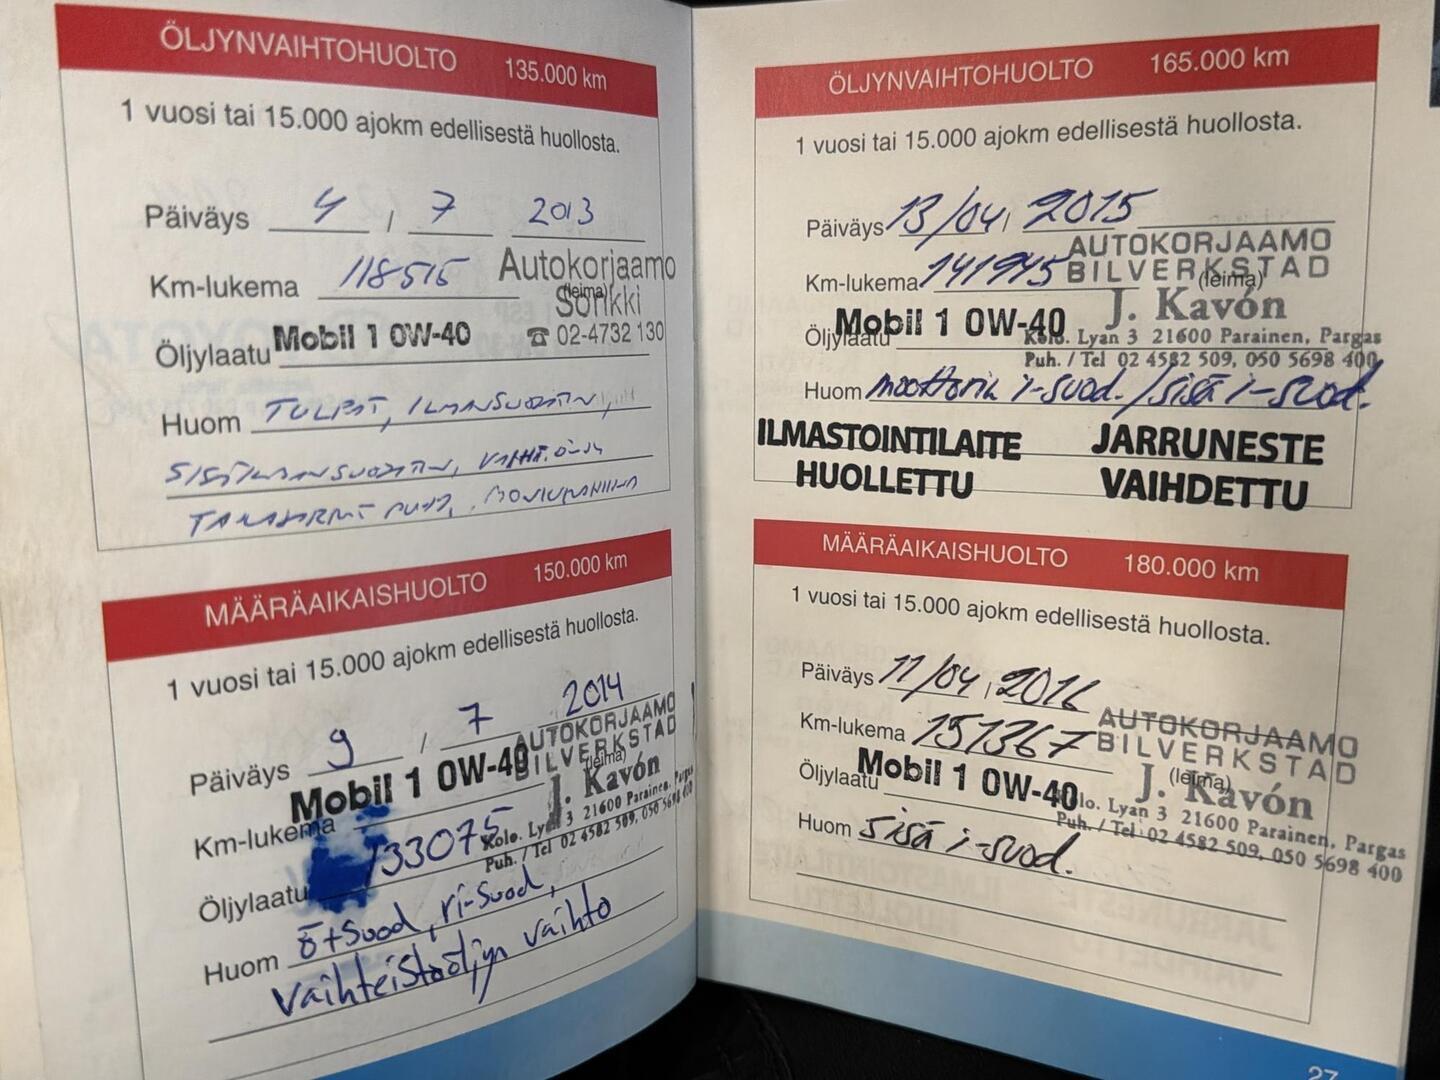 ÖLJYNVAIHTOHUOLTO 135.000 km
1 vuosi tai 15.000 ajokm edellisestä huollosta.
Päiväys 4 / 7 2013
Km-lukema 118515
Autokorjaamo
(leima)
Sorikki
☎ 02-4732 130
Öljylaatu Mobil 1 0W-40
Huom TULPAT, ILMANSUODATIN,
SISÄILMANSUODATIN, VAIHT.ÖLJY
TAKAJARRUT PUHD,
MÄÄRÄAIKAISHUOLTO 150.000 km
1 vuosi tai 15.000 ajokm edellisestä huollosta.
Päiväys 9 / 7 2014
Mobil 1 0W-40
AUTOKORJAAMO
BILVERKSTAD
(leima)
J. Kavón
Kolo. Lyan 3 21600 Parainen, Pargas
Puh. / Tel 02 4582 509, 050 5698 400
Km-lukema 133075
Öljylaatu
Huom ö+Suod, ri-Suod,
vaihteistoöljyn vaihto
ÖLJYNVAIHTOHUOLTO 165.000 km
1 vuosi tai 15.000 ajokm edellisestä huollosta.
Päiväys 13/04 / 2015
Km-lukema 141945
AUTOKORJAAMO
BILVERKSTAD
(leima)
J. Kavón
Kolo. Lyan 3 21600 Parainen, Pargas
Puh. / Tel 02 4582 509, 050 5698 400
Öljylaatu Mobil 1 0W-40
Huom moottorin i-suod./sisä i-suod.
ILMASTOINTILAITE JARRUNESTE
HUOLLETTU VAIHDETTU
MÄÄRÄAIKAISHUOLTO 180.000 km
1 vuosi tai 15.000 ajokm edellisestä huollosta.
Päiväys 11/04 / 2016
Km-lukema 151367
AUTOKORJAAMO
BILVERKSTAD
(leima)
J. Kavón
Kolo. Lyan 3 21600 Parainen, Pargas
Puh. / Tel 02 4582 509, 050 5698 400
Öljylaatu Mobil 1 0W-40
Huom sisä i-suod.
27